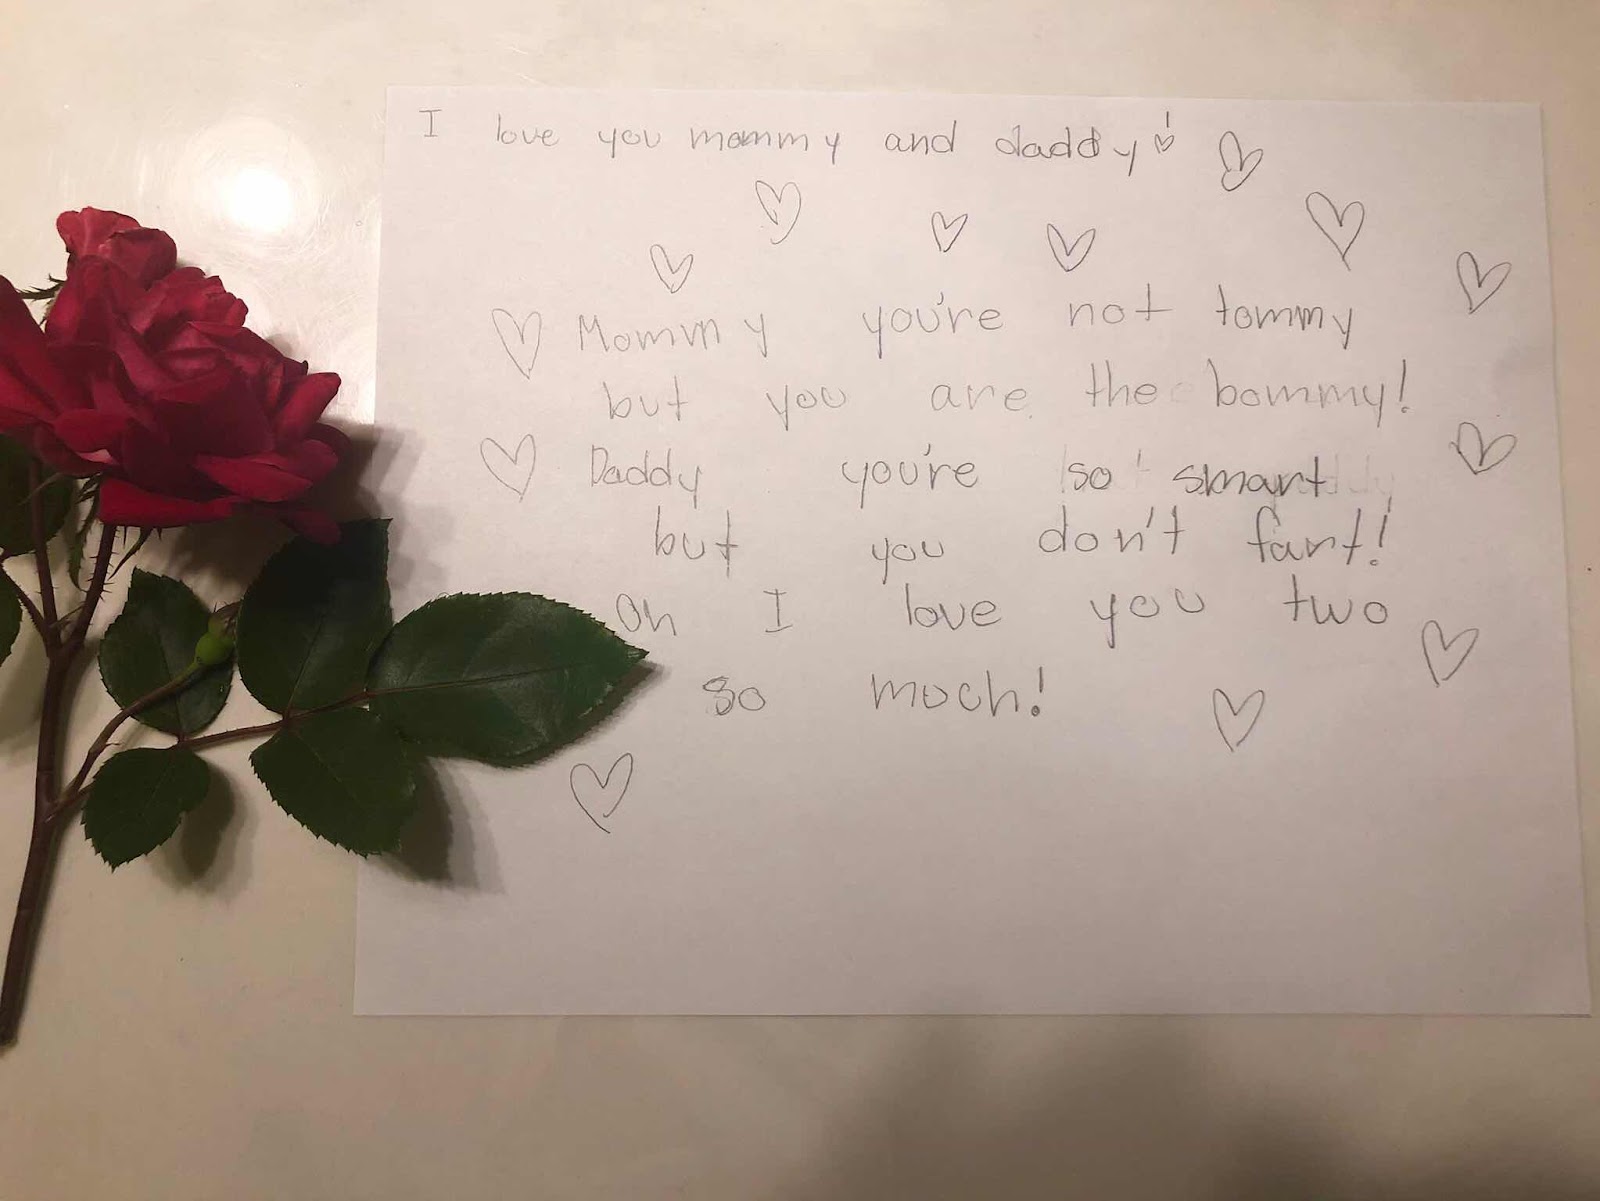 I love you mommy and daddy!
Mommy you're not tommy
but you are the bommy!
Daddy you're so smart
but you don't fart!
Oh I love you two
so much!